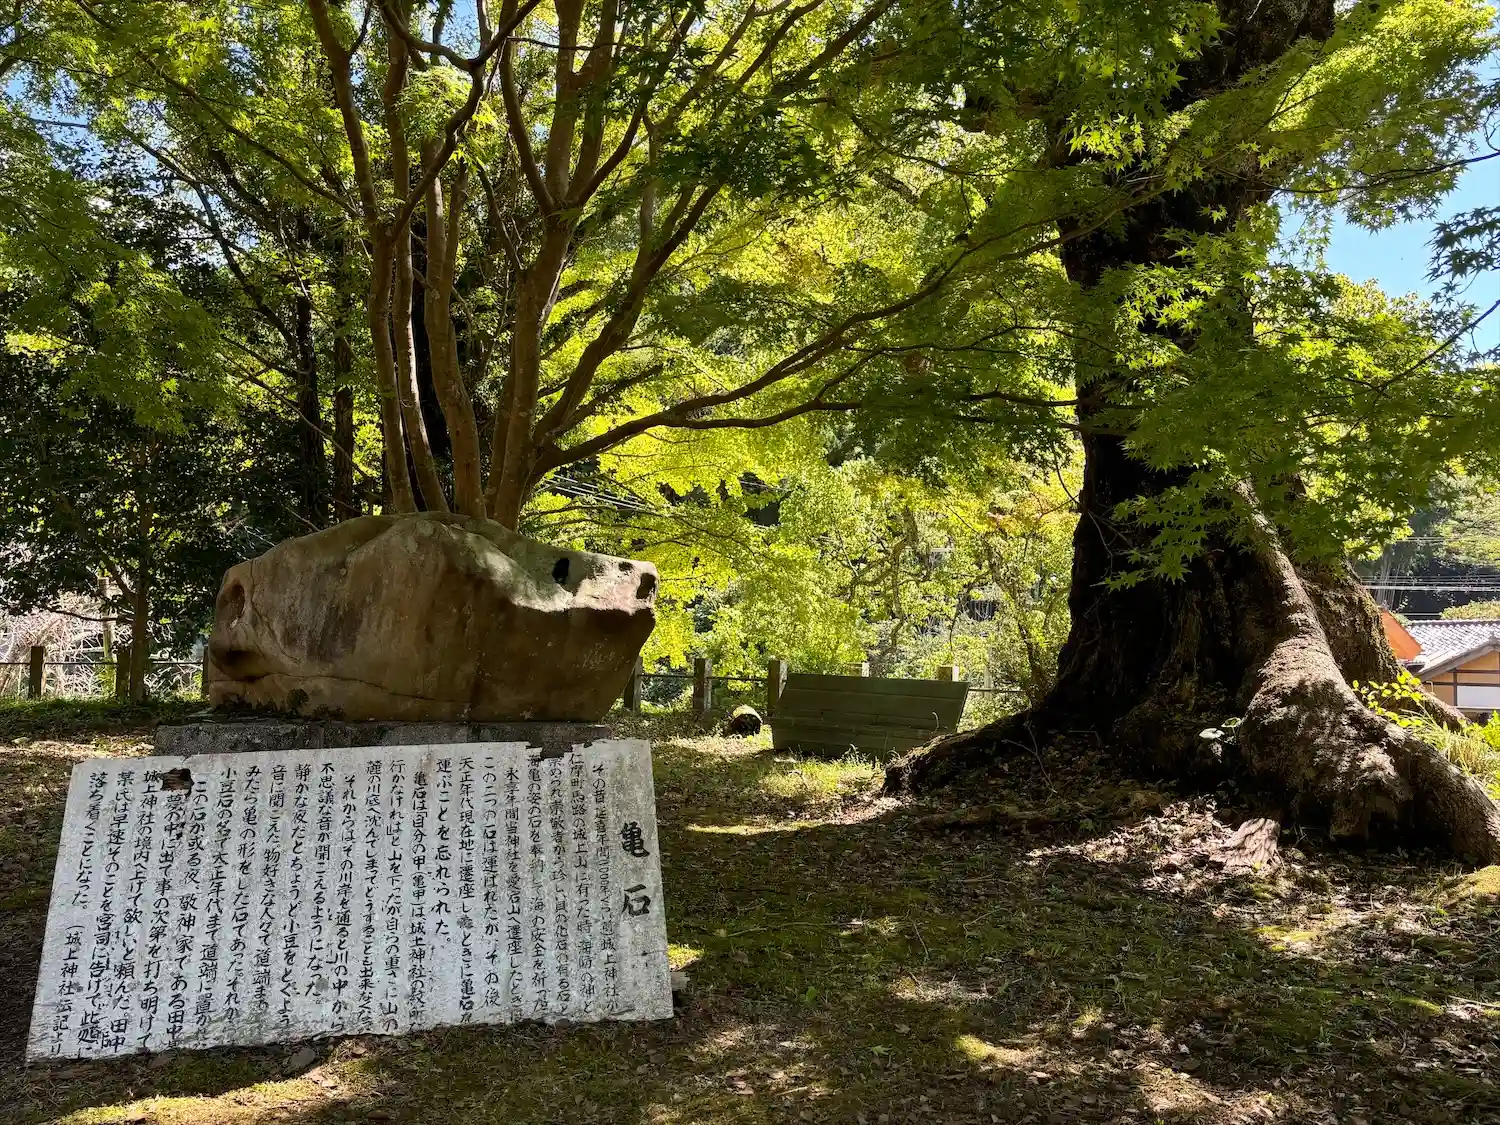 亀石
その昔延喜年間城上神社が
仁摩町馬路の城上山に有った時、海崎の神と
崇められ崇敬者から珍しい貝の化石の有る石と
海亀の姿の石を奉納して海の安全を祈った
永享年間当神社を愛宕山へ遷座したとき
この二つの石は運ばれたが、その後
天正年代現在地に遷座したときに亀石
運ぶことを忘れられた。
亀石は「自分の甲(亀甲)は城上神社の紋所だ
行かなければ」と山を下ったが自らの重さに山の
麓の川底へ沈んでしまってどうすることも出来なた
それからはその川岸を通ると川の中から
不思議な音が聞こえるようになった
静かな夜だとちょうど小豆をとぐよう
音に聞こえた物好きな人々で道端ま
みたら亀の形をした石であった。それから
小豆石の名で大正年代まで道端に置か
この石が或る夜、敬神家である田中
夢の中に出て事の次第を打ち明けて
城上神社の境内へ上げて欲しいと頼んだ。田中
某氏は早速そのことを宮司に告げて此処に
落ち着くことになった。 (城上神社伝記より